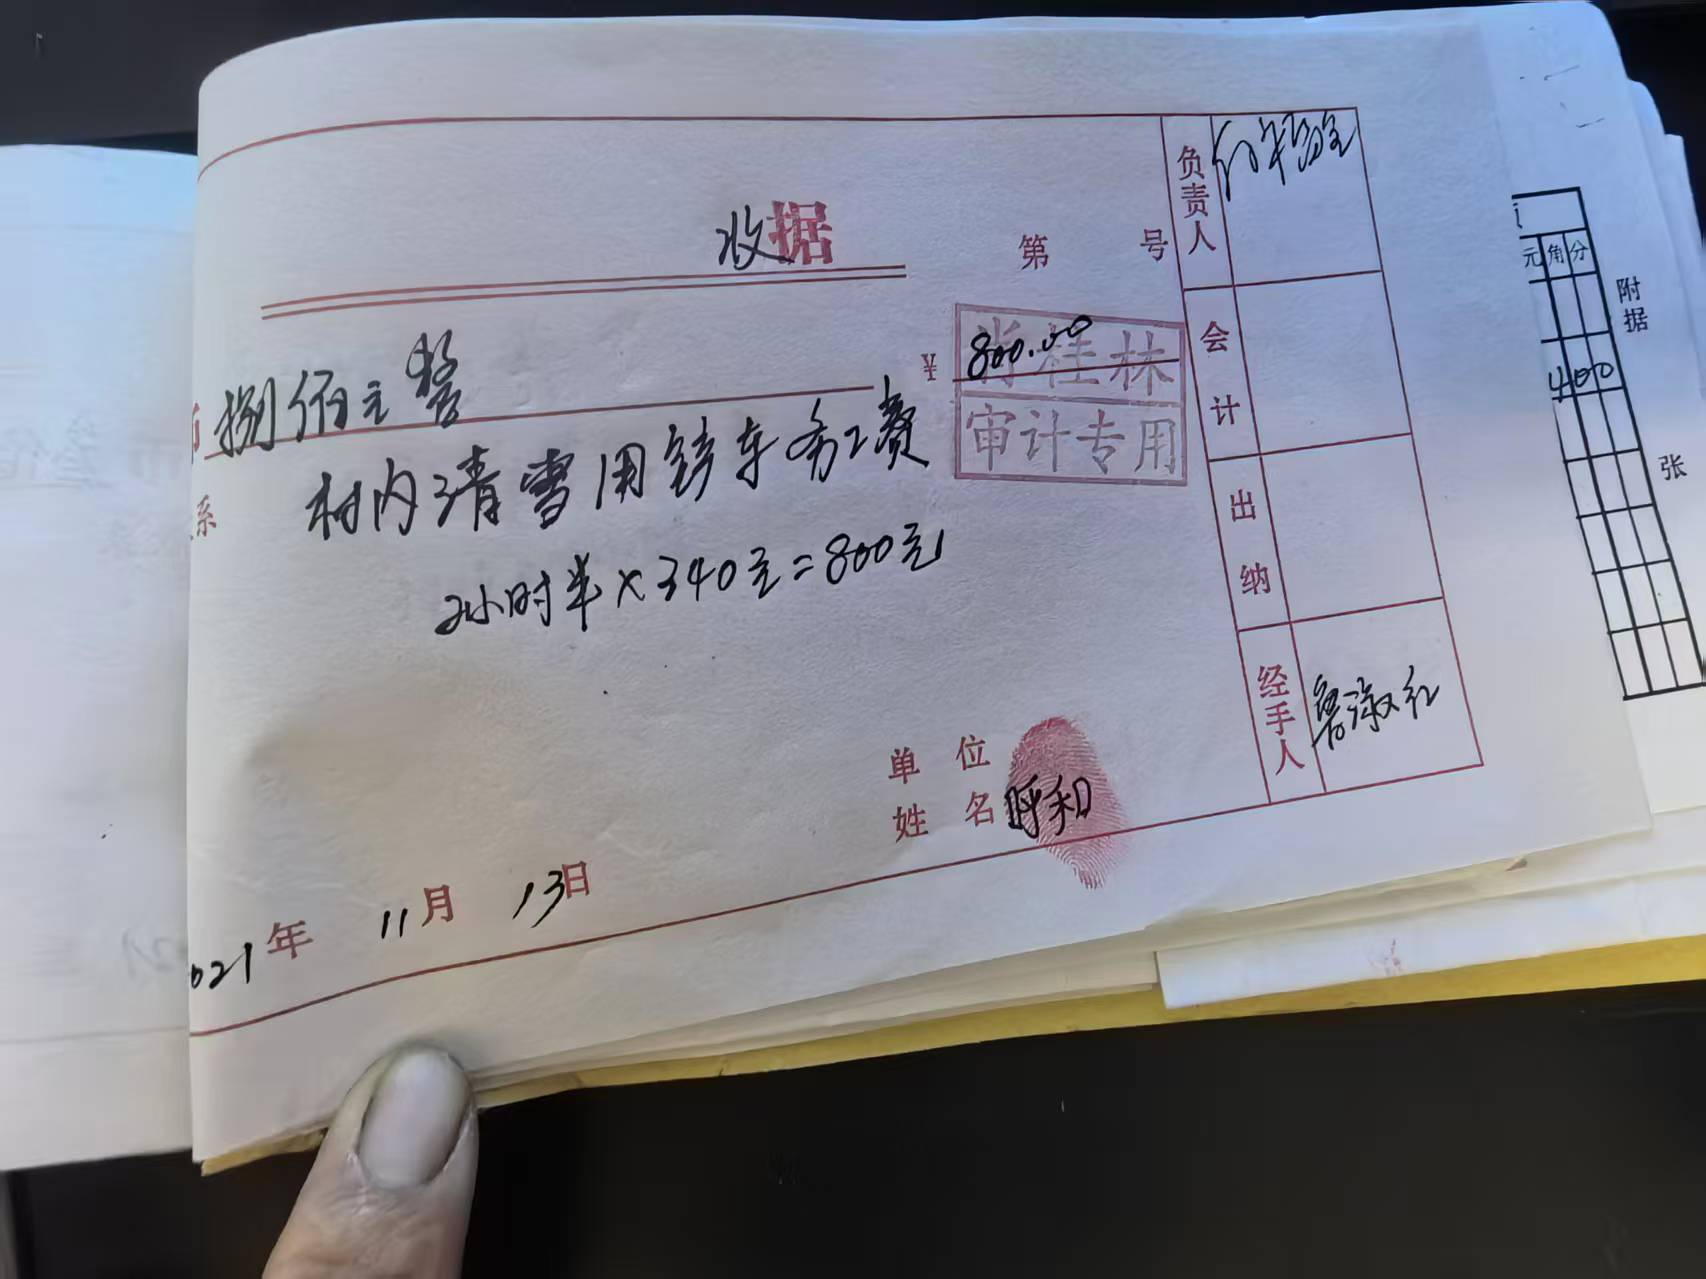 收据
第 号
捌佰元整
¥ 800.00
桂林
审计专用
系 村内清雪用铲车务工费
2小时半×340元=800元
单位
姓名 呼和
021年 11月 13日
负责人
会计
出纳
经手人 鲁淑红
元 角 分
400
附据
张